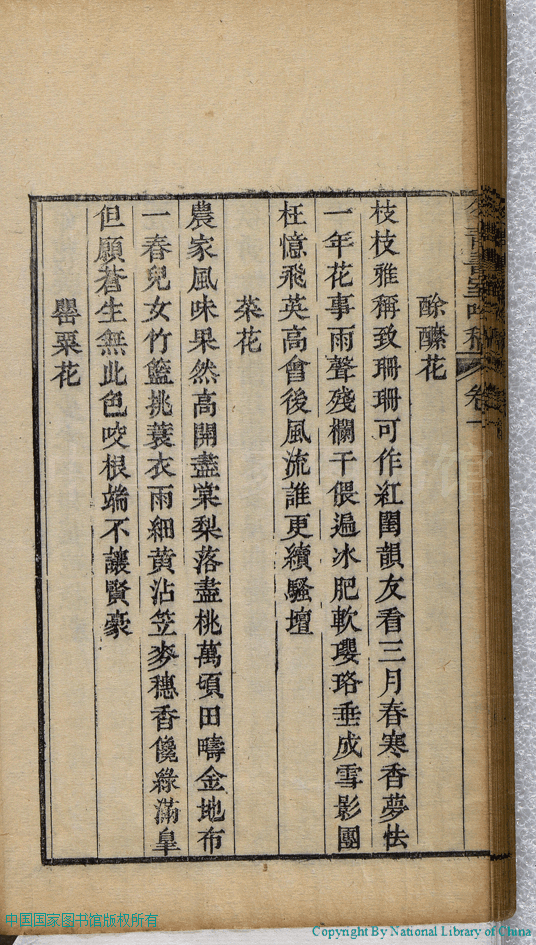 酴醾花
枝枝雅稱致珊珊可作紅閨韻友看三月春寒香夢怯
一年花事雨聲殘欄干偎遍冰肥軟瓔珞垂成雪影團
枉憶飛英高會後風流誰更續騷壇
菜花
農家風味果然高開盡棠梨落盡桃萬頃田疇金地布
一春兒女竹籃挑蓑衣雨細黄沾笠麥穗香儳綠滿皐
但願蒼生無此色咬根端不讓賢豪
罌粟花
吟稿
卷一
中国国家图书馆版权所有
Copyright By National Library of China